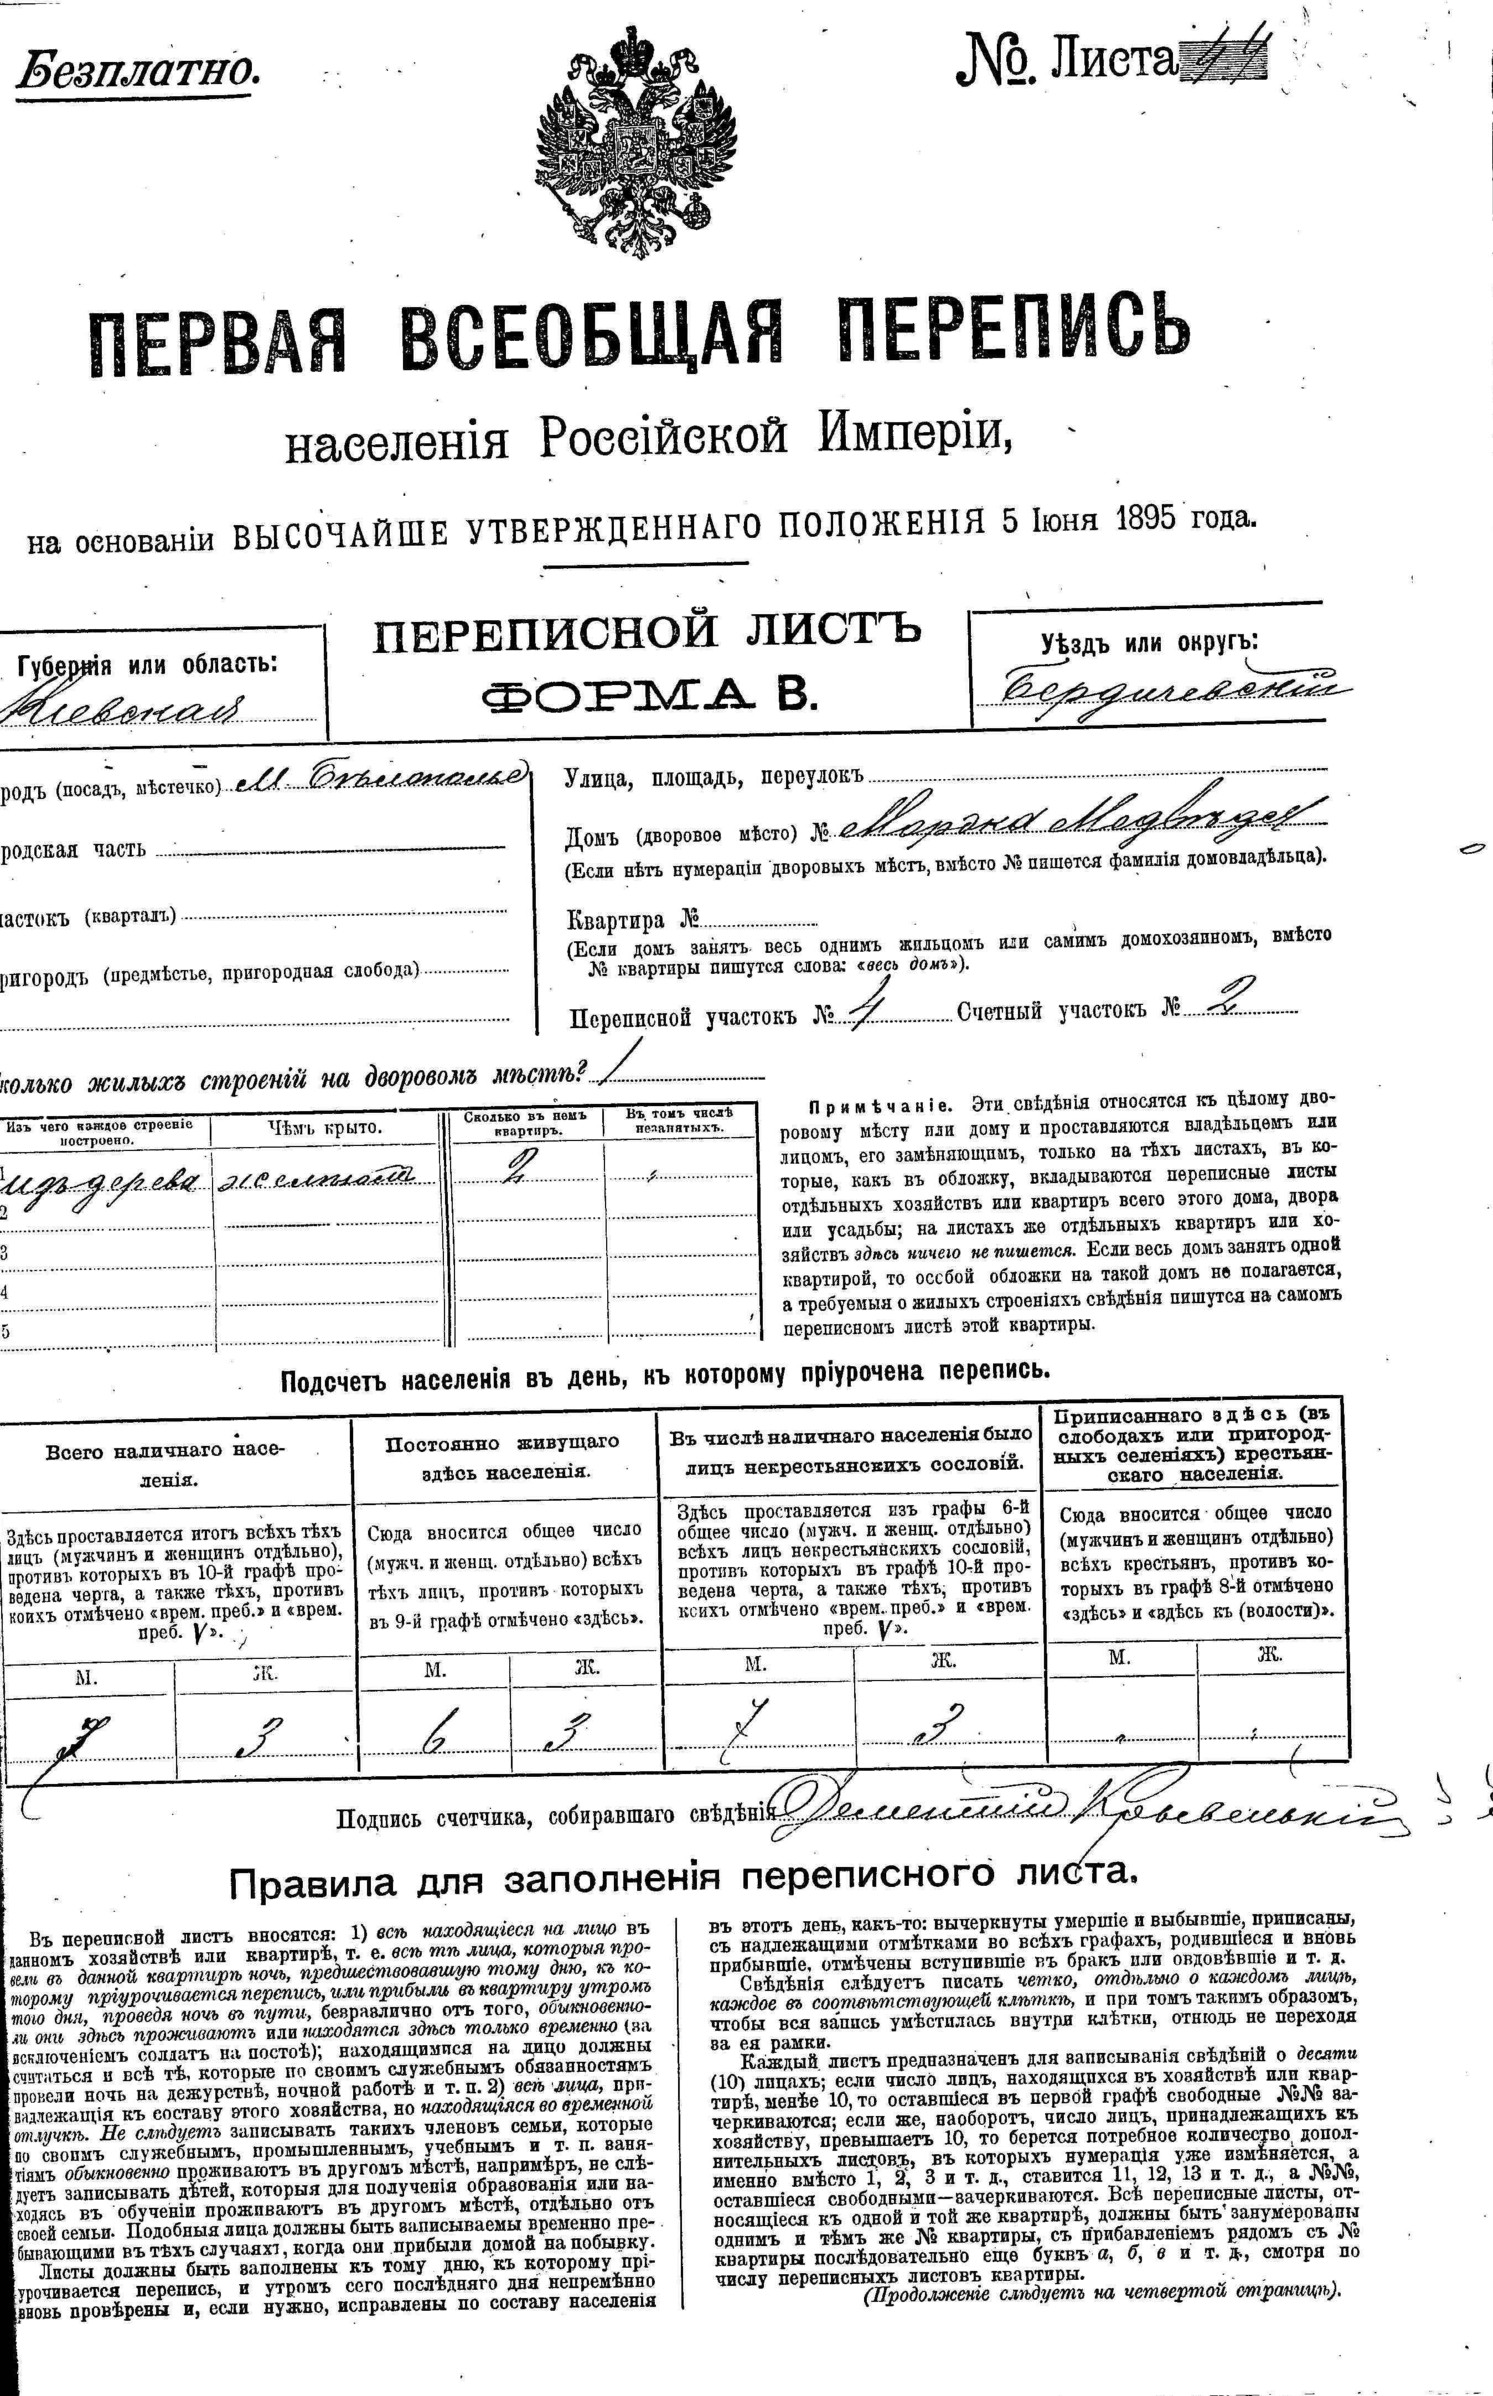 Безплатно.
№. Листа 44
ПЕРВАЯ ВСЕОБЩАЯ ПЕРЕПИСЬ
населенія Россійской Имперіи,
на основаніи ВЫСОЧАЙШЕ УТВЕРЖДЕННАГО ПОЛОЖЕНІЯ 5 Іюня 1895 года.
Губернія или область:
Кіевская
ПЕРЕПИСНОЙ ЛИСТЪ
ФОРМА В.
Уѣздъ или округъ:
Бердичевскій
родъ (посадъ, мѣстечко) М. Бѣлополье
родская часть
частокъ (кварталъ)
ригородъ (предмѣстье, пригородная слобода)
Улица, площадь, переулокъ
Домъ (дворовое мѣсто) № Мордка Медвѣдя
(Если нѣтъ нумераціи дворовыхъ мѣстъ, вмѣсто № пишется фамилія домовладѣльца).
Квартира №
(Если домъ занятъ весь однимъ жильцомъ или самимъ домохозяиномъ, вмѣсто
№ квартиры пишутся слова: «весь домъ»).
Переписной участокъ № 4 Счетный участокъ № 2
колько жилыхъ строеній на дворовомъ мѣстѣ? 1
Изъ чего каждое строеніе построено. Чѣмъ крыто. Сколько въ немъ квартиръ. Въ томъ числѣ незанятыхъ.
1 изъ дерева 2 "
2
3
4
5
Примѣчаніе. Эти свѣдѣнія относятся къ цѣлому дво-
ровому мѣсту или дому и проставляются владѣльцемъ или
лицомъ, его замѣняющимъ, только на тѣхъ листахъ, въ ко-
торые, какъ въ обложку, вкладываются переписные листы
отдѣльныхъ хозяйствъ или квартиръ всего этого дома, двора
или усадьбы; на листахъ же отдѣльныхъ квартиръ или хо-
зяйствъ здѣсь ничего не пишется. Если весь домъ занятъ одной
квартирой, то особой обложки на такой домъ не полагается,
а требуемыя о жилыхъ строеніяхъ свѣдѣнія пишутся на самомъ
переписномъ листѣ этой квартиры.
Подсчетъ населенія въ день, къ которому пріурочена перепись.
Всего наличнаго насе-
ленія.
Здѣсь проставляется итогъ всѣхъ тѣхъ
лицъ (мужчинъ и женщинъ отдѣльно),
противъ которыхъ въ 10-й графѣ про-
ведена черта, а также тѣхъ, противъ
коихъ отмѣчено «врем. преб.» и «врем.
преб. V».
Постоянно живущаго
здѣсь населенія.
Сюда вносится общее число
(мужч. и женщ. отдѣльно) всѣхъ
тѣхъ лицъ, противъ которыхъ
въ 9-й графѣ отмѣчено «здѣсь».
Въ числѣ наличнаго населенія было
лицъ некрестьянскихъ сословій.
Здѣсь проставляется изъ графы 6-й
общее число (мужч. и женщ. отдѣльно)
всѣхъ лицъ некрестьянскихъ сословій,
противъ которыхъ въ графѣ 10-й про-
ведена черта, а также тѣхъ, противъ
коихъ отмѣчено «врем. преб.» и «врем.
преб. V».
Приписаннаго здѣсь (въ
слободахъ или пригород-
ныхъ селеніяхъ) крестьян-
скаго населенія.
Сюда вносится общее число
(мужчинъ и женщинъ отдѣльно)
всѣхъ крестьянъ, противъ ко-
торыхъ въ графѣ 8-й отмѣчено
«здѣсь» и «здѣсь къ (волости)».
М. Ж. М. Ж. М. Ж. М. Ж.
7 3 6 3 7 3 " "
Подпись счетчика, собиравшаго свѣдѣнія Дементій
Правила для заполненія переписного листа.
Въ переписной листъ вносятся: 1) всѣ находящіеся на лицо въ
данномъ хозяйствѣ или квартирѣ, т. е. всѣ тѣ лица, которыя про-
вели въ данной квартирѣ ночь, предшествовавшую тому дню, къ ко-
торому пріурочивается перепись, или прибыли въ квартиру утромъ
того дня, проведя ночь въ пути, безразлично отъ того, обыкновенно-
ли они здѣсь проживаютъ или находятся здѣсь только временно (за
исключеніемъ солдатъ на постоѣ); находящимися на лицо должны
считаться и всѣ тѣ, которые по своимъ служебнымъ обязанностямъ
провели ночь на дежурствѣ, ночной работѣ и т. п. 2) всѣ лица, при-
надлежащія къ составу этого хозяйства, но находящіяся во временной
отлучкѣ. Не слѣдуетъ записывать такихъ членовъ семьи, которые
по своимъ служебнымъ, промышленнымъ, учебнымъ и т. п. заня-
тіямъ обыкновенно проживаютъ въ другомъ мѣстѣ, напримѣръ, не слѣ-
дуетъ записывать дѣтей, которыя для полученія образованія или на-
ходясь въ обученіи проживаютъ въ другомъ мѣстѣ, отдѣльно отъ
своей семьи. Подобныя лица должны быть записываемы временно пре-
бывающими въ тѣхъ случаяхъ, когда они прибыли домой на побывку.
Листы должны быть заполнены къ тому дню, къ которому прі-
урочивается перепись, и утромъ сего послѣдняго дня непремѣнно
вновь провѣрены и, если нужно, исправлены по составу населенія
въ этотъ день, какъ-то: вычеркнуты умершіе и выбывшіе, приписаны,
съ надлежащими отмѣтками во всѣхъ графахъ, родившіеся и вновь
прибывшіе, отмѣчены вступившіе въ бракъ или овдовѣвшіе и т. д.
Свѣдѣнія слѣдуетъ писать четко, отдѣльно о каждомъ лицѣ,
каждое въ соотвѣтствующей клѣткѣ, и при томъ такимъ образомъ,
чтобы вся запись умѣстилась внутри клѣтки, отнюдь не переходя
за ея рамки.
Каждый листъ предназначенъ для записыванія свѣдѣній о десяти
(10) лицахъ; если число лицъ, находящихся въ хозяйствѣ или квар-
тирѣ, менѣе 10, то оставшіеся въ первой графѣ свободные №№ за-
черкиваются; если же, наоборотъ, число лицъ, принадлежащихъ къ
хозяйству, превышаетъ 10, то берется потребное количество допол-
нительныхъ листовъ, въ которыхъ нумерація уже измѣняется, а
именно вмѣсто 1, 2, 3 и т. д., ставится 11, 12, 13 и т. д., а №№,
оставшіеся свободными—зачеркиваются. Всѣ переписные листы, от-
носящіеся къ одной и той же квартирѣ, должны быть занумерованы
однимъ и тѣмъ же № квартиры, съ прибавленіемъ рядомъ съ №
квартиры послѣдовательно еще буквъ а, б, в и т. д., смотря по
числу переписныхъ листовъ квартиры.
(Продолженіе слѣдуетъ на четвертой страницѣ).